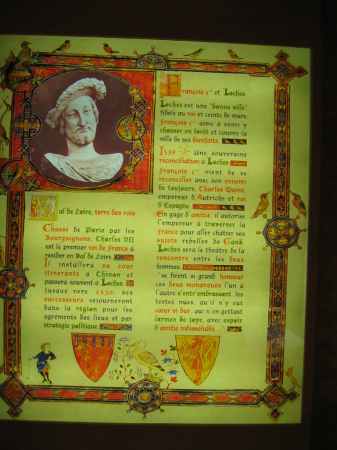 François 1er et Loches
Loches est une "bonne ville"
fidèle au roi et ceinte de murs.
François 1er aime à venir y
chasser en forêt et couvre la
ville de ses bienfaits.
1539 : Une souveraine
réconciliation à Loches
François 1er vient de se
réconcilier avec son ennemi
de toujours, Charles Quint,
empereur d'Autriche et roi
d'Espagne
En gage d'amitié, il autorise
l'empereur à traverser la
France pour aller châtier ses
sujets rebelles de Gand.
Loches sera le théâtre de la
rencontre entre les deux
hommes
"se firent si grand honneur
ces deux monarques l'un à
l'autre s'entr'embrassant, les
testes nues, qu'il n'y eut
cœur si dur, qui n'en gettast
larmes de joye, avec espoir
d'amitié
Val de Loire, terre des rois
Chassé de Paris par les
Bourguignons, Charles VII
est le premier roi de France à
résider en Val de Loire
Il installera sa cour
itinérante à Chinon et
passera souvent à Loches
Jusque vers 1530, ses
successeurs séjourneront
dans la région pour les
agréments des lieux et par
stratégie politique